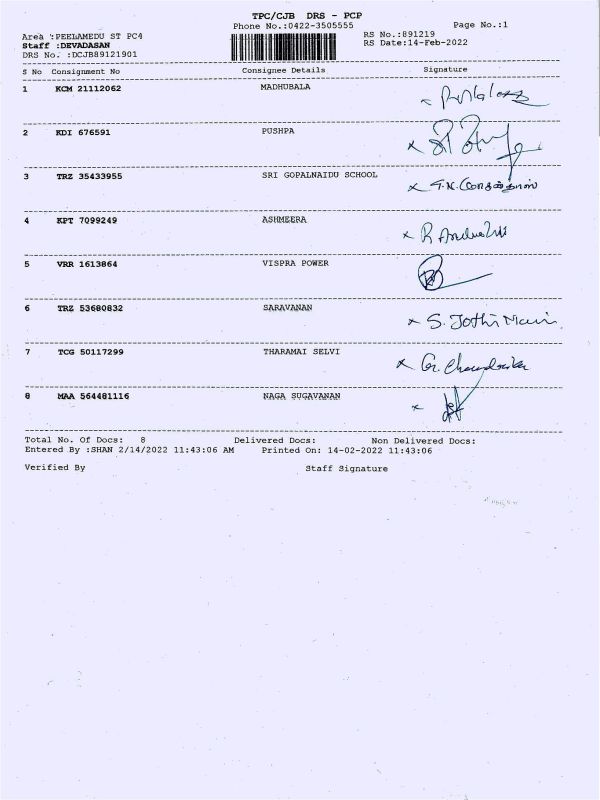 TPC/CJB DRS - PCP
Phone No.:0422-3505555 Page No.:1
Area :PEELAMEDU ST PC4 RS No.:891219
Staff :DEVADASAN RS Date:14-Feb-2022
DRS No. :DCJB89121901
S No Consignment No Consignee Details Signature
1 KCM 21112062 MADHUBALA
2 KDI 676591 PUSHPA
3 TRZ 35433955 SRI GOPALNAIDU SCHOOL
4 KPT 7099249 ASHMEERA
5 VRR 1613864 VISPRA POWER
6 TRZ 53680832 SARAVANAN
x S. Jothi Mani
7 TCG 50117299 THARAMAI SELVI
x G. Chandrika
8 MAA 564481116 NAGA SUGAVANAN
Total No. Of Docs: 8 Delivered Docs: Non Delivered Docs:
Entered By :SHAN 2/14/2022 11:43:06 AM Printed On: 14-02-2022 11:43:06
Verified By Staff Signature